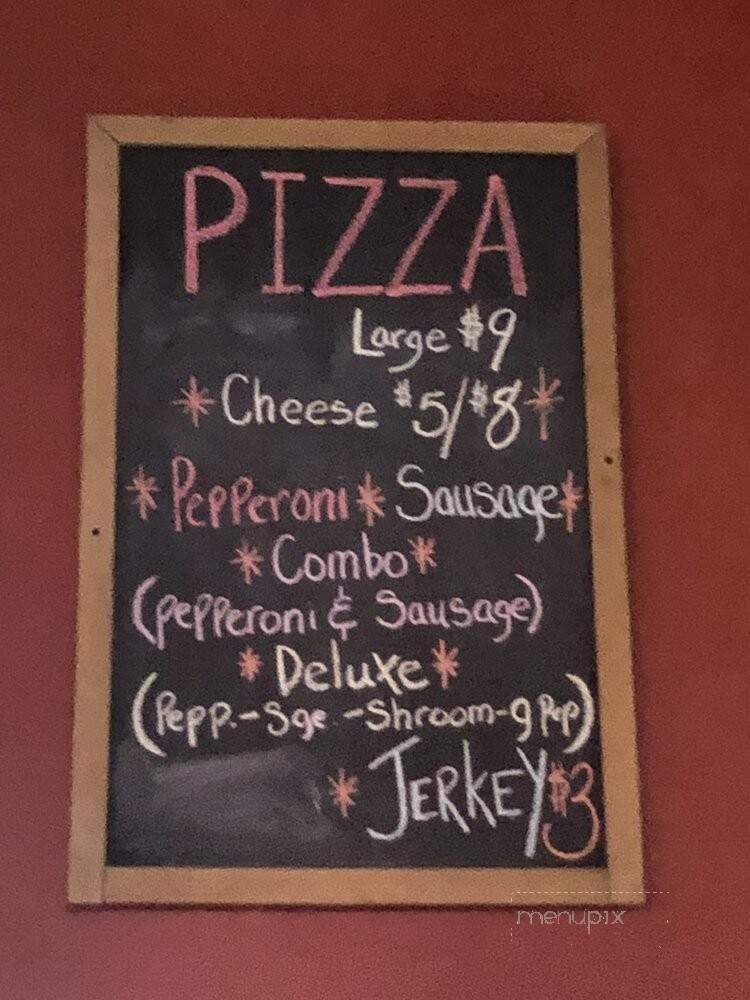 PIZZA
Large $9
* Cheese $5/$8 *
* Pepperoni * Sausage *
* Combo *
(pepperoni & Sausage)
* Deluxe *
(Pepp.-Sge.-Shroom-g Pep)
* JERKEY $3
menupix